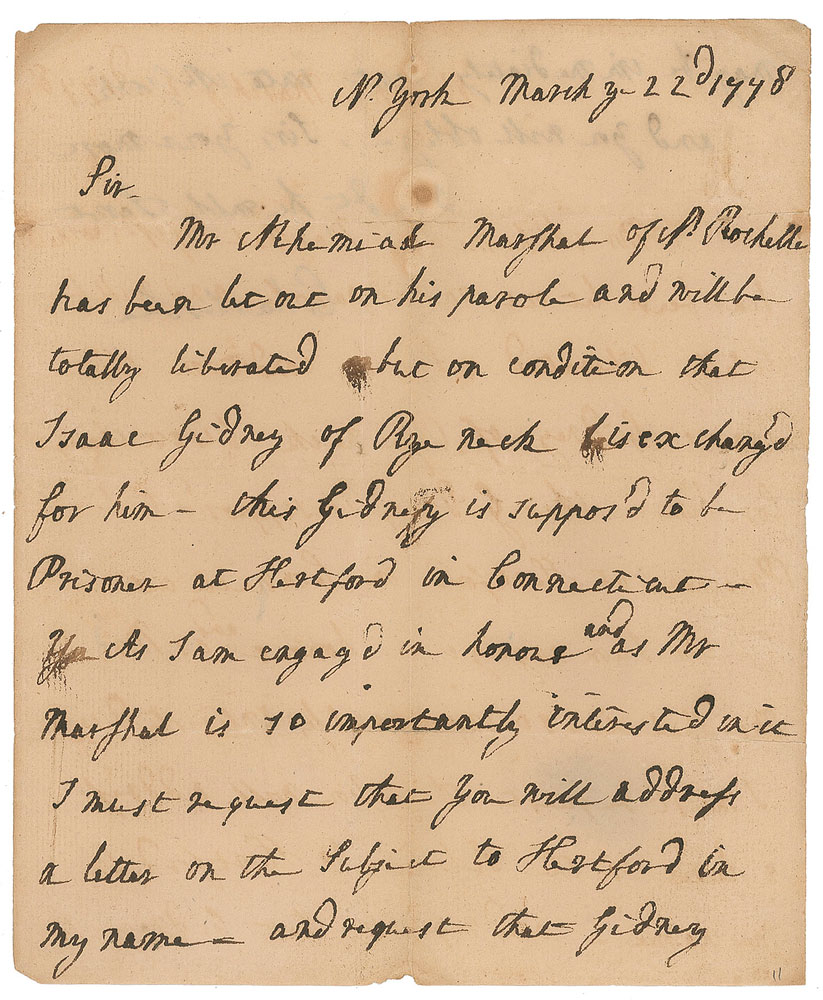 N. York March ye 22d 1778
Sir-
Mr Nehemiah Marshal of N. Rochelle
has been let out on his parole and will be
totally liberated but on condition that
Isaac Gidney of Rye neck is exchang'd
for him - this Gidney is suppos'd to be
Prisoner at Hertford in Connecticut -
As I am engag'd in honour and as Mr
Marshal is so importantly interested in it
I must request that You will address
a letter on the Subject to Hertford in
my name - and request that Gidney
11